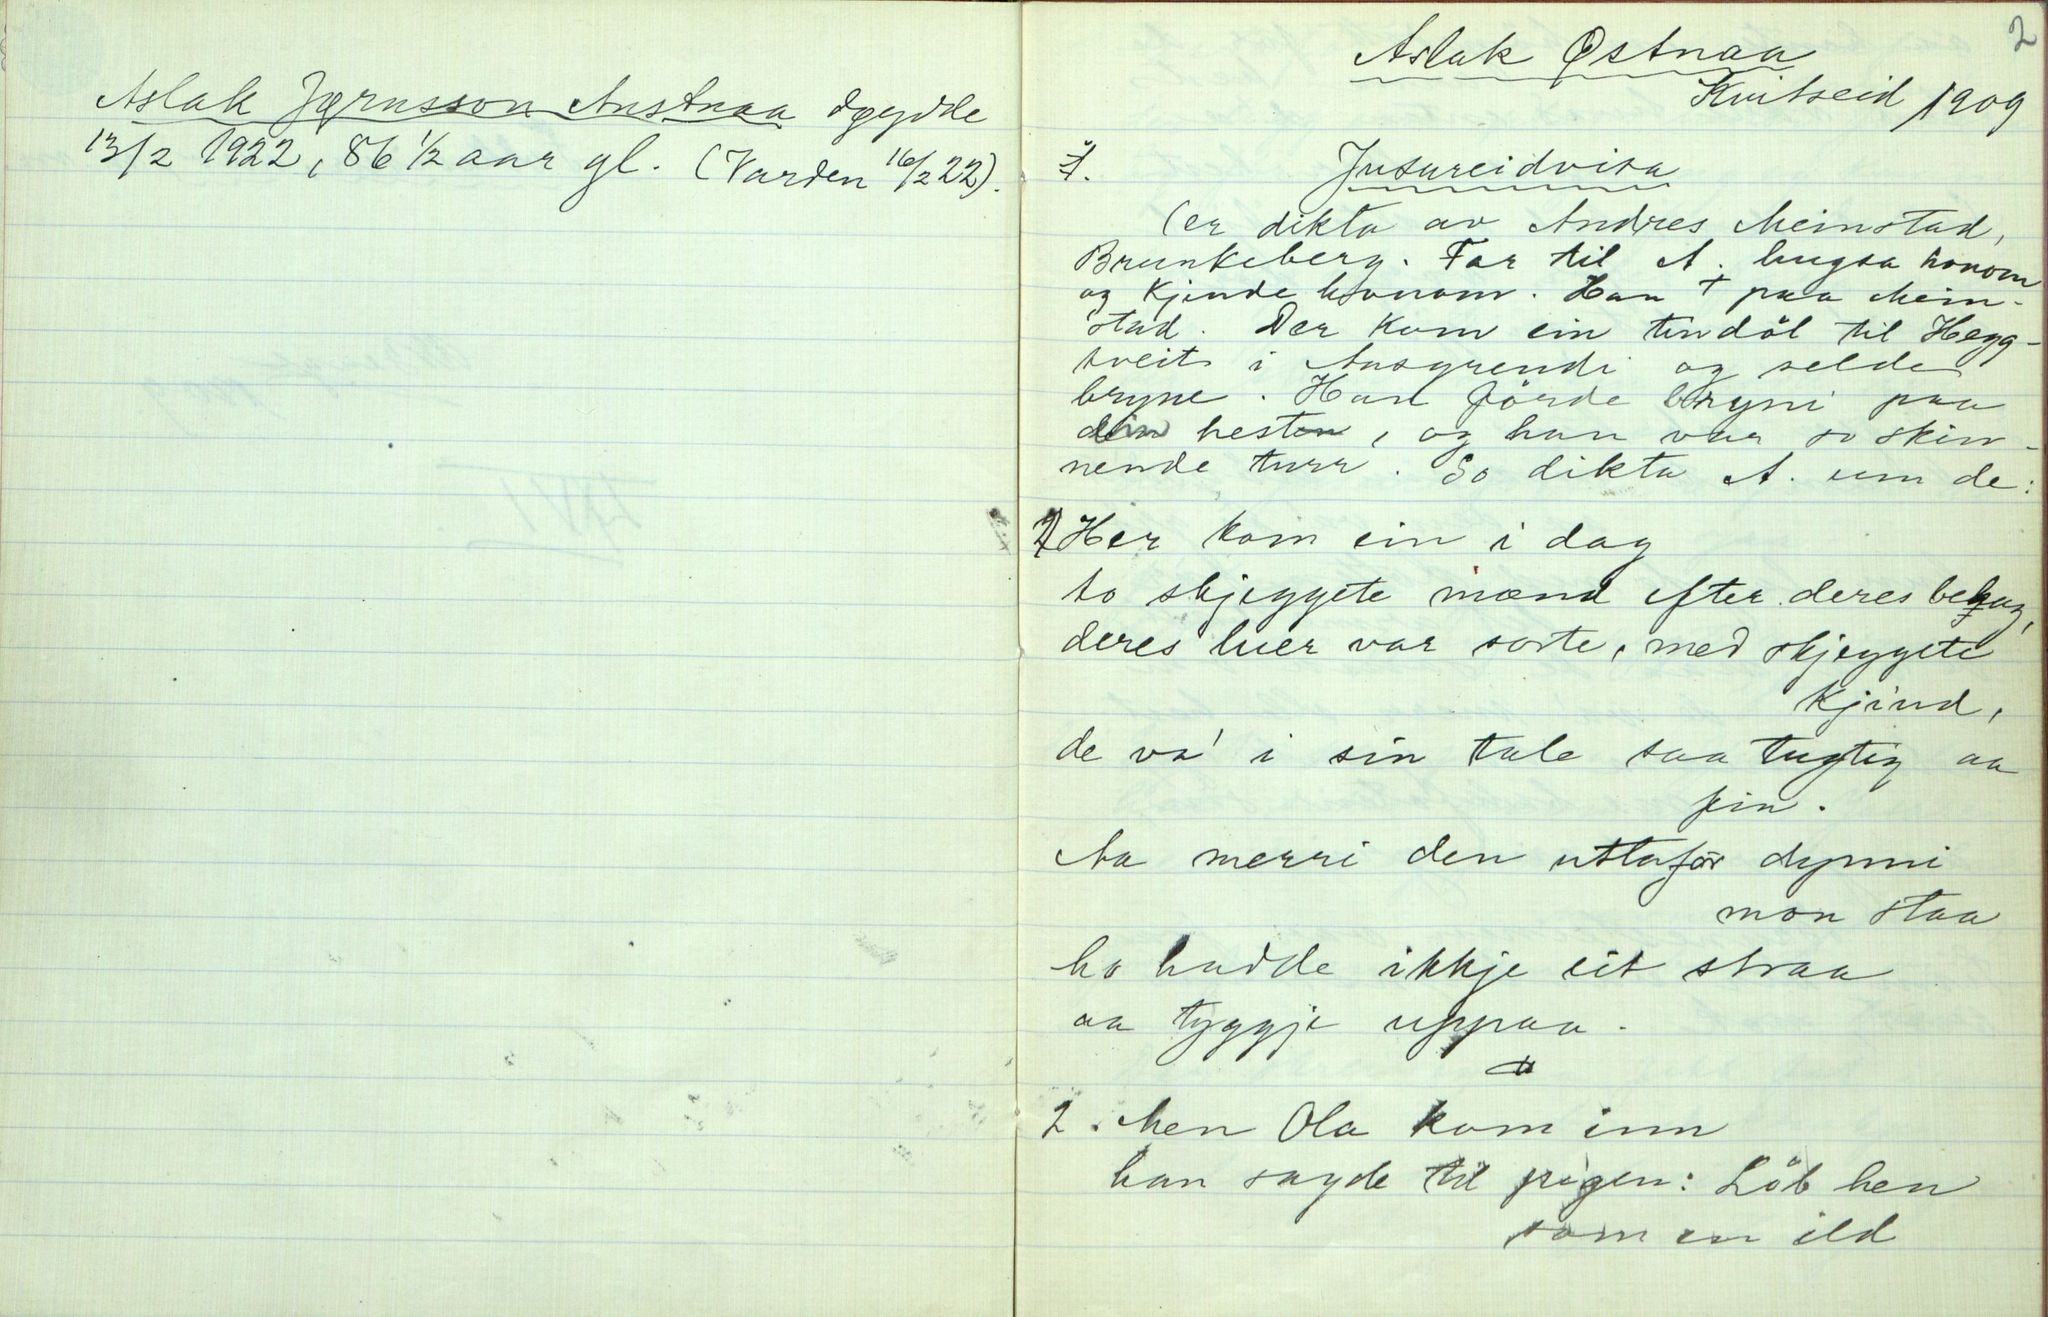 Aslak Jørnsson Austnaa døydde
13/2 1922, 86 1/2 aar gl. (Varden 16/2 22).
2
Aslak Østnaa
Kvitseid 1909
1.
Jutureidvisa
(er dikta av Andres Meinstad,
Brunkeberg. Far til A. hugsa honom
og kjende honom. Han + paa Mein-
stad. Der kom ein tindöl til Hegg-
tveit i Ausgrendi og selde
bryne. Han förde bryni paa
ein hest, og han var so skin-
nende turr. So dikta A. um de:
Her kom ein i dag
to skjeggete mænd efter deres behag,
deres luer var sorte, med skjeggete
kjind,
de va' i sin tale saa tugtig aa
fin.
Aa merri den uttafor dynni
mon staa
ho hadde ikkje eit straa
aa tyggje uppaa.
2. Men Ola kom inn
han sagde til pigen: Löb hen
som en ild